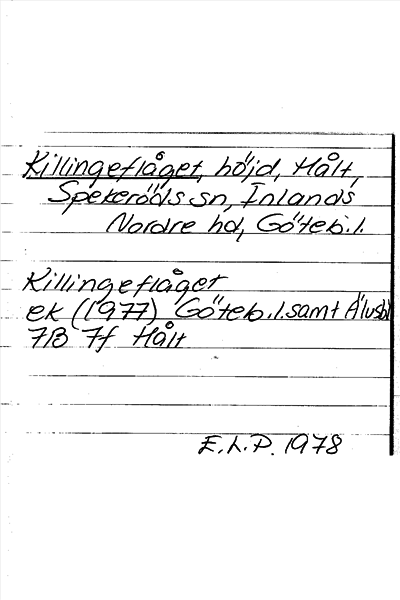 Killingeflåget, höjd, Hålt,
Spekeröds sn, Inlands
Nordre hd, Göteb.l.
Killingeflåget
ek (1977) Göteb.l.samt Älvsbl
7B 7f Hålt
E.L.P. 1978